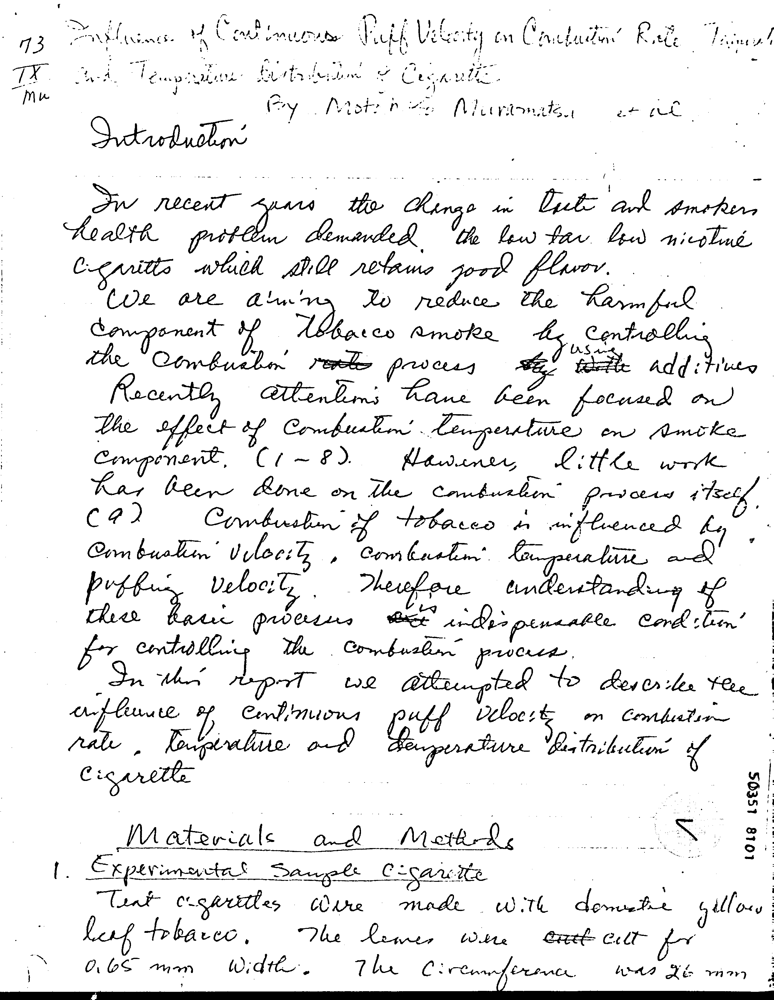 73 Influence of Continuous Puff Velocity on Combustion Rate,
IX and Temperature Distribution of Cigarette
Mu
By Muramatsu et al
Introduction
In recent years the change in taste and smokers
health problem demanded, the low tar low nicotine
cigaretts which still retains good flavor.
We are aiming to reduce the harmful
component of tobacco smoke by controlling
the combustion rate process by with using additives
Recently attentions have been focused on
the effect of combustion temperature on smoke
component. (1-8). However, little work
has been done on the combustion process itself.
(9) Combustion of tobacco is influenced by
combustion velocity, combustion temperature and
puffing velocity. Therefore understanding of
these basic processes is indispensable condition
for controlling the combustion process.
In this report we attempted to describe the
influence of continuous puff velocity on combustion
rate, temperature and temperature distribution of
cigarette
Materials and Methods
1. Experimental Sample Cigarette
Test cigarettes were made with domestic yellow
leaf tobacco. The leaves were cut cut for
0.65 mm width. The circumference was 26 mm
50351 8101